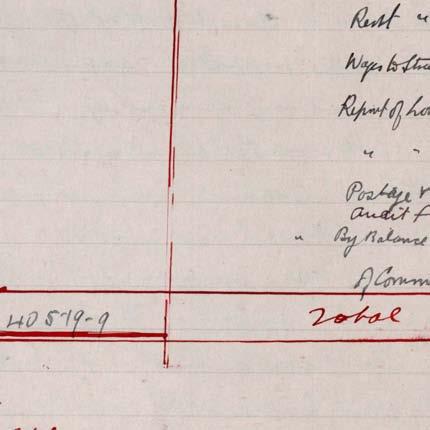 Rent "
Wages to
Report of
" "
Postage &
Audit F
" By Balance
Of Comm
40579-9 Total